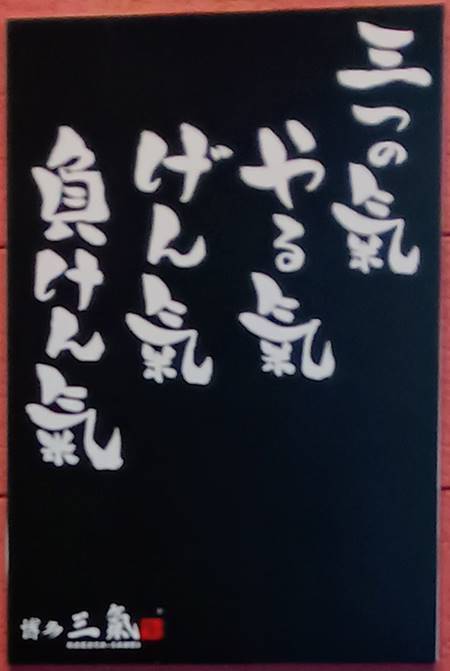 三つの氣
やる氣
げん氣
負けん氣
博多 三氣